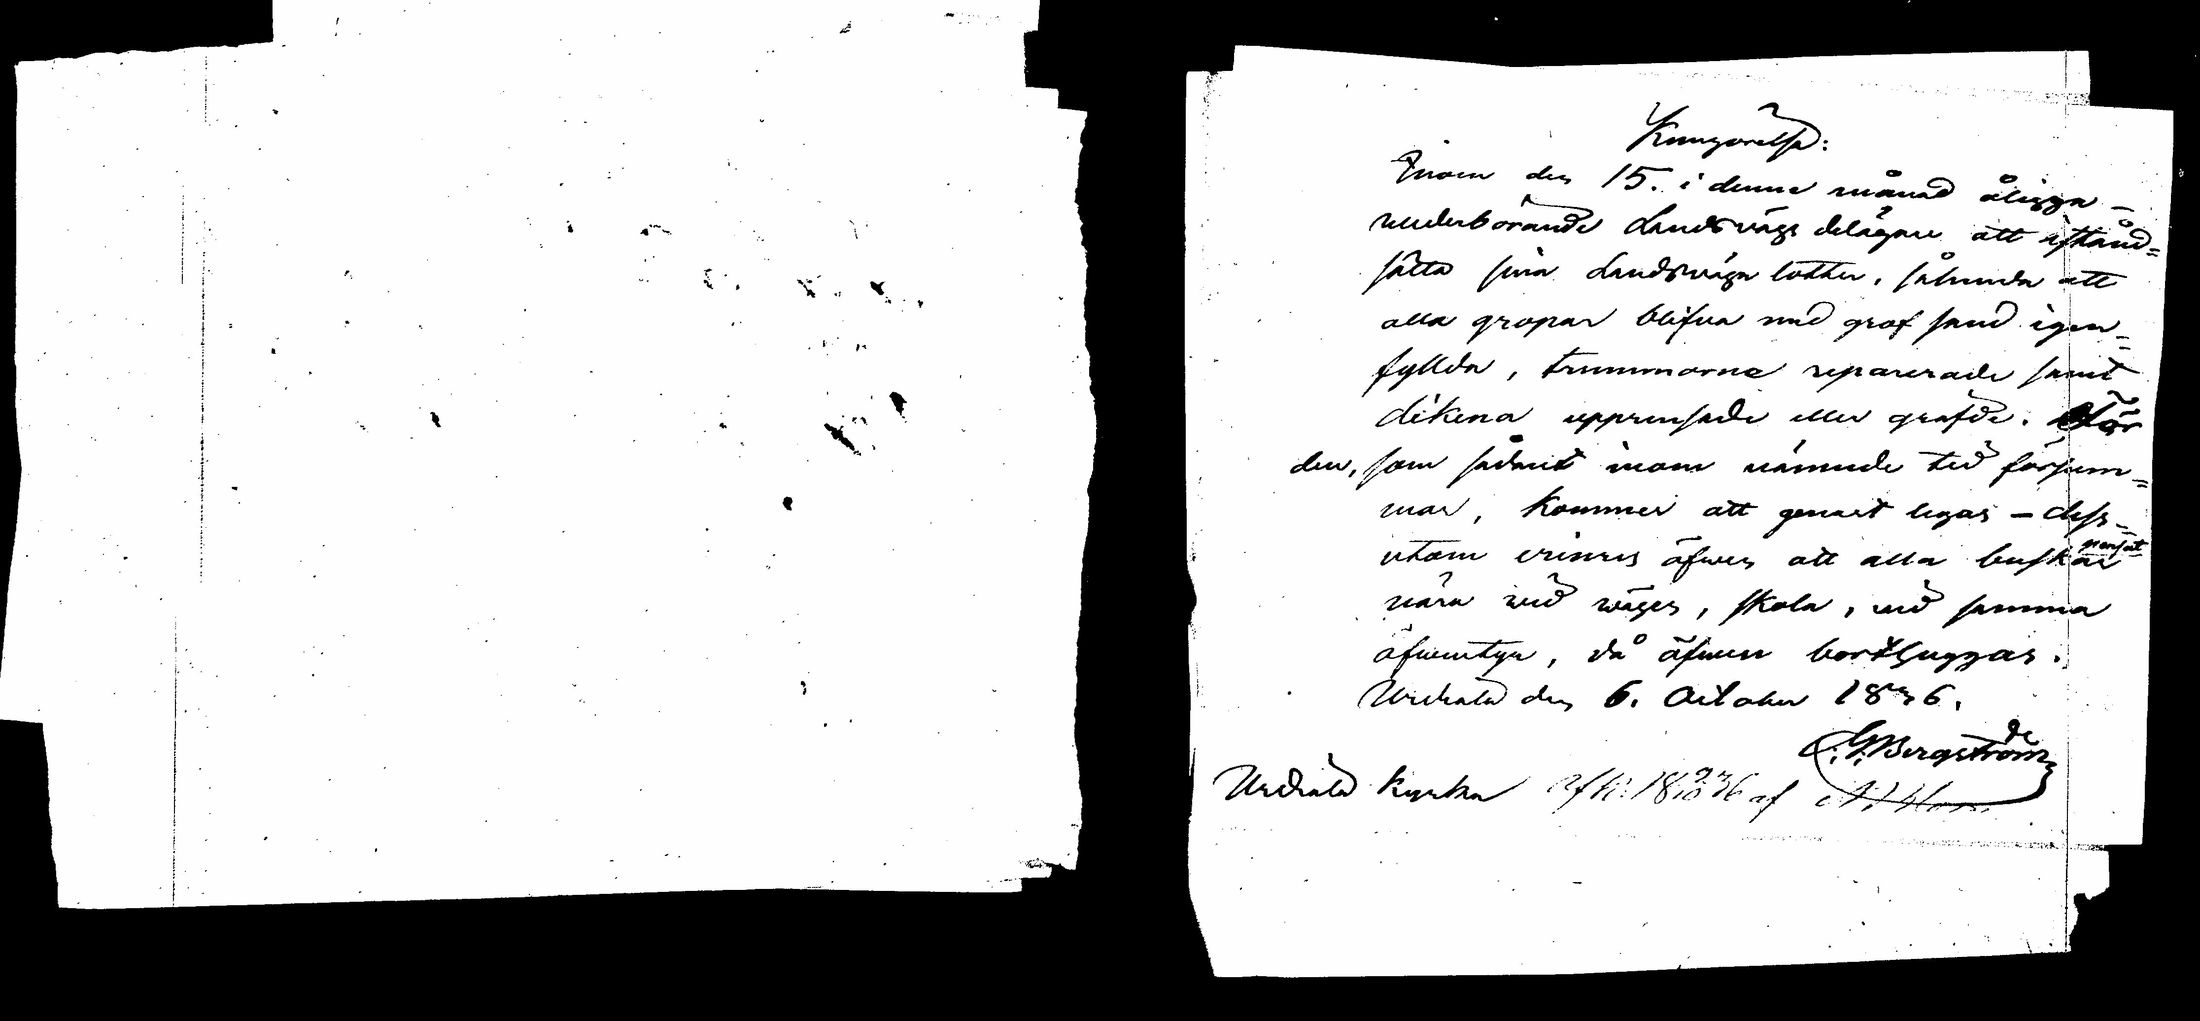 Kungörelse:
Inom den 15. i denne månad åligga
vederbörande Landsvägs delägare att iständ=
sätta sina Landsväga lotter, sålunda att
alla gropar blifva med grof sand igen=
fyllda, trummorne reparerade samt
dikena upprensade eller grafde. För
den, som sådant inom nämnde tid försum=
mar, kommer att genast legas – dess=
utom erinres äfwen att alla buskar
nära wid wägen, skola, wid samma
äfwentyr, då äfwen borthuggas.
Urdiala den 6. October 1836.
Bergström
Urdiala kyrka af